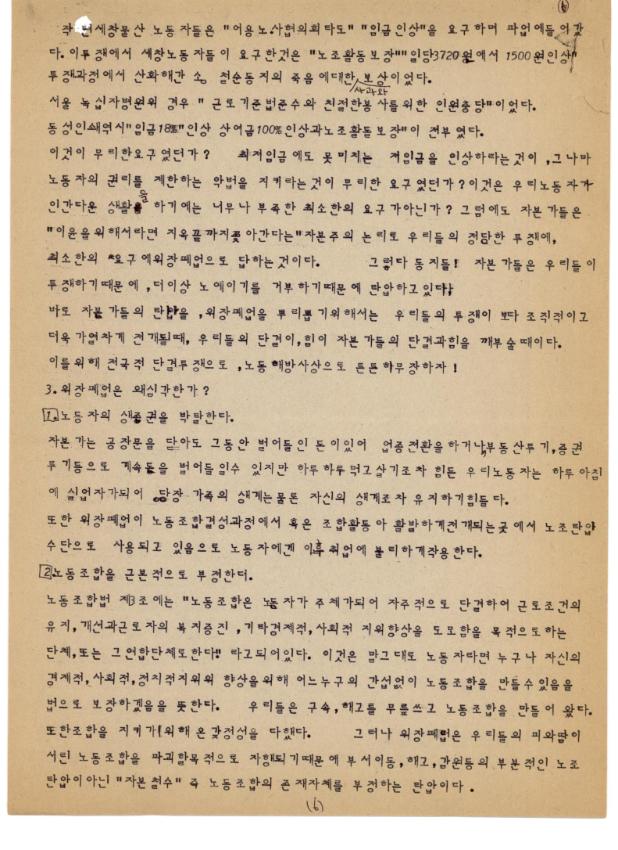 ⑥
작년 세창물산 노동자들은 "어용노사협의회타도" "임금인상"을 요구하며 파업에들어갔
다. 이투쟁에서 세창노동자들이 요구한것은 "노조활동보장""일당3720원에서 1500원인상"
투쟁과정에서 산화해간 송철순동지의 죽음에대한 사과와 보상이었다.
서울 녹십자병원위 경우 "근로기준법준수와 친절한봉사를위한 인원충당"이었다.
동성인쇄역시"임금18%"인상 상여금100%인상과노조활돌보장"이 전부였다.
이것이 무리한요구였던가? 최저임금에도 못미치는 저임금을 인상하라는것이, 그나마
노동자의 권리를 제한하는 악법을 지키라는것이 무리한 요구였던가?이것은 우리노동자가
인간다운 생활을 하기에는 너무나 부족한 최소한의 요구가아닌가? 그럼에도 자본가들은
"이윤을위해서라면 지옥끝까지쫓아간다는"자본주의 논리로 우리들의 정당한 투쟁에,
최소한의 요구에위장폐업으로 답하는것이다. 그렇다 동지들! 자본가들은 우리들이
투쟁하기때문에,더이상 노예이기를 거부하기때문에 탄압하고있다.
바로 자본가들의 탄압을,위장폐업을 뿌리뽑기위해서는 우리들의 투쟁이 보다 조직적이고
더욱가열차게 전개될때, 우리들의 단결이,힘이 자본가들의 단결과힘을 깨부술때이다.
이를위해 전국적 단결투쟁으로,노동해방사상으로 튼튼하무장하자!
3.위장폐업은 왜심각한가?
1.노동자의 생존권을 박탈한다.
자본가는 공장문을 닫아도 그동안 벌어들인 돈이있어 업종전환을하거나,부동산투기,증권
투기등으로 계속돈을 벌어들일수 있지만 하루하루먹고살기조차 힘든 우리노동자는 하루아침
에 실업자가되어 당장 가족의 생계는물론 자신의 생계조차 유지하기힘들다.
또한 위장폐업이 노동조합결성과정에서 혹은 조합활동이 활발하게전개되는곳에서 노조탄압
수단으로 사용되고 있음으로 노동자에겐 이후 취업에 불리하게작용한다.
2.노동조합을 근본적으로 부정한다.
노동조합법 제3조에는 "노동조합은 노동자가 주체가되어 자주적으로 단결하여 근로조건의
유지,개선과근로자의 복지증진,기타경제적,사회적 지위향상을 도모함을 목적으로하는
단체,또는 그연합단체도한다" 라고되어있다. 이것은 말그대로 노동자라면 누구나 자신의
경제적,사회적,정치적지위위 향상을위해 어느누구의 간섭없이 노동조합을 만들수있음을
법으로 보장하겠음을 뜻한다. 우리들은 구속,해고를 무릅쓰고 노동조합을 만들어 왔다.
또한조합을 지키기위해 온갖정성을 다했다. 그러나 위장폐업은 우리들의 피와땀이
서린 노동조합을 파괴할목적으로 자행되기때문에 부서이동,해고,감원등의 부분적인 노조
탄압이아닌 "자본철수" 즉 노동조합의 존재자체를 부정하는 탄압이다.
(6)